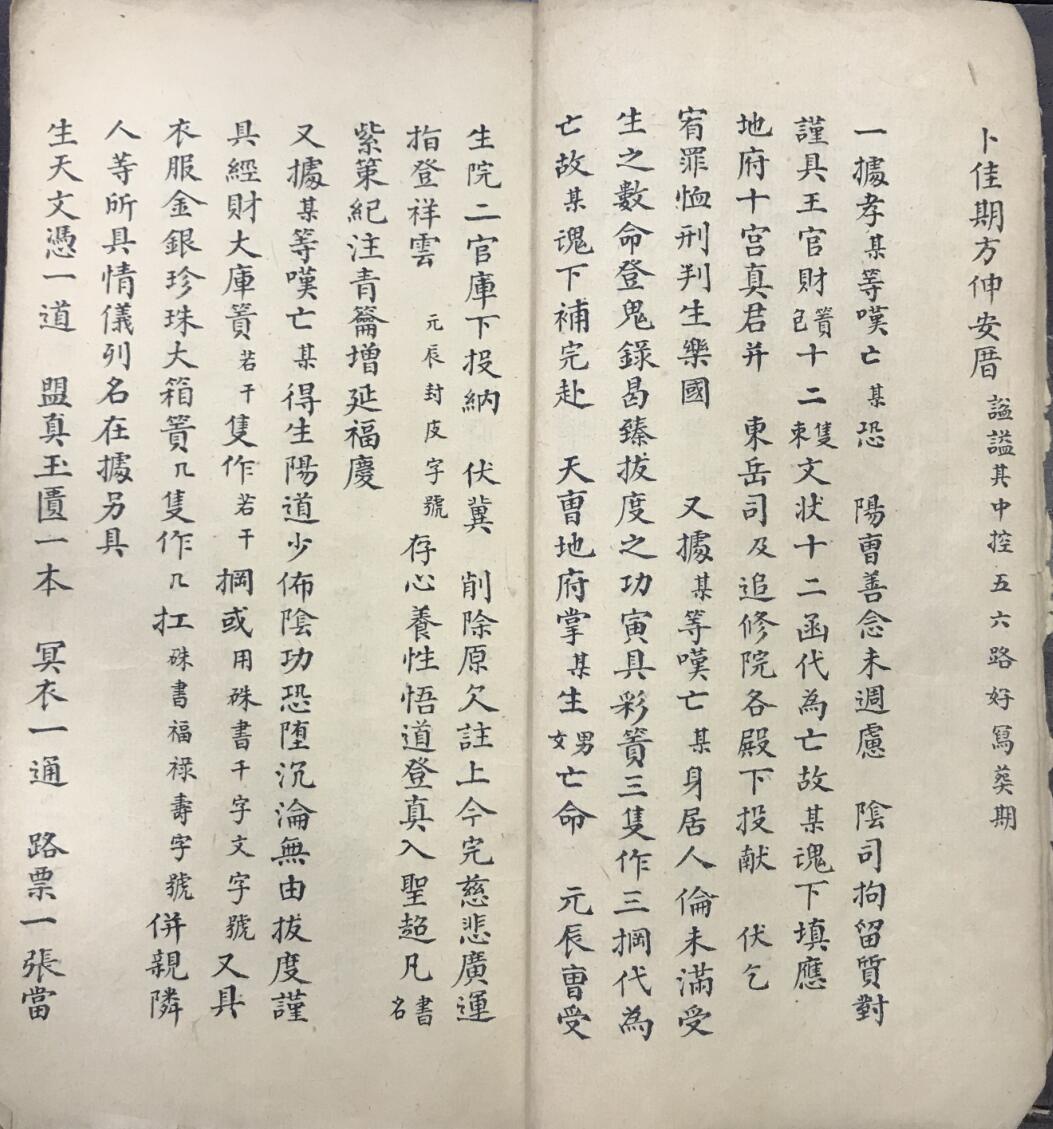 卜佳期方伸安厝 謚謚其中控五六路好寫葬期
一據孝某等嘆亡某恐 陽曺善念未週慮 陰司拘留質對
謹具王官財籄皀十二隻束文状十二函代為亡故某魂下填應
地府十宫真君并 東岳司及追修院各殿下投献 伏乞
宥罪恤刑判生樂國 又據某等嘆亡某身居人倫未滿受
生之數命登鬼錄曷臻拔度之功寅具彩籄三隻作三掆代為
亡故某魂下補完赴 天曺地府掌某生男女亡命 元辰曺受
生院二官庫下投納 伏冀 削除原欠註上今完慈悲廣運
指登祥雲 元辰封皮字號 存心養性悟道登真入聖超凡書名
紫策紀注青籥增延福慶
又據某等嘆亡某得生陽道少佈陰功恐堕沉淪無由拔度謹
具經財大庫籄若干隻作若干掆或用硃書千字文字號又具
衣服金銀珍珠大箱籄几隻作几扛硃書福禄壽字號併親隣
人等所具情儀列名在據另具
生天文憑一道 盟真玉匱一本 冥衣一通 路票一張當